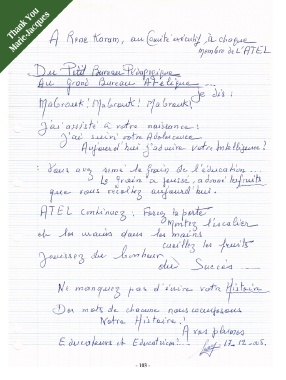 Thank You
Marie-Jacques
A Rene Karam, au Comité exécutif à chaque
membre de L'ATEL
Du Petit Bureau Pédagogique
Au grand Bureau ATELique....
Je dis :
Mabrouk! Mabrouk! Mabrouk!
J'ai assisté à votre naissance!
J'ai suivi votre Adolescence
Aujourd'hui j'admire votre Intelligence!
Vous avez semé le grain de l'éducation...
Le grain a poussé, a donné les fruits
que vous récoltez aujourd'hui.
ATEL continuez : Forcez la porte
Montez l'escalier
et les mains dans les mains
cueillez les fruits
Jouissez du bonheur
du Succès
Ne manquez pas d'écrire votre Histoire
Des mots de chacune nous composons
Notre Histoire!
A vos plumes
Educateurs et Educatrices!...
13-12-05.
- 105 -